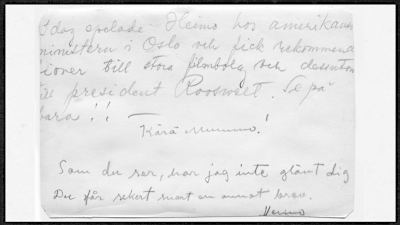 Idag spelade Heimo hos amerikans
ministern i Oslo och fick rekommenda
tioner till stora filmbolag och dessutom
till president Roosvelt. Se på
bara!!
Kära Mummo!
Som du ser, har jag inte glömt dig
Du får säkert snart en annat brev.
Heimo